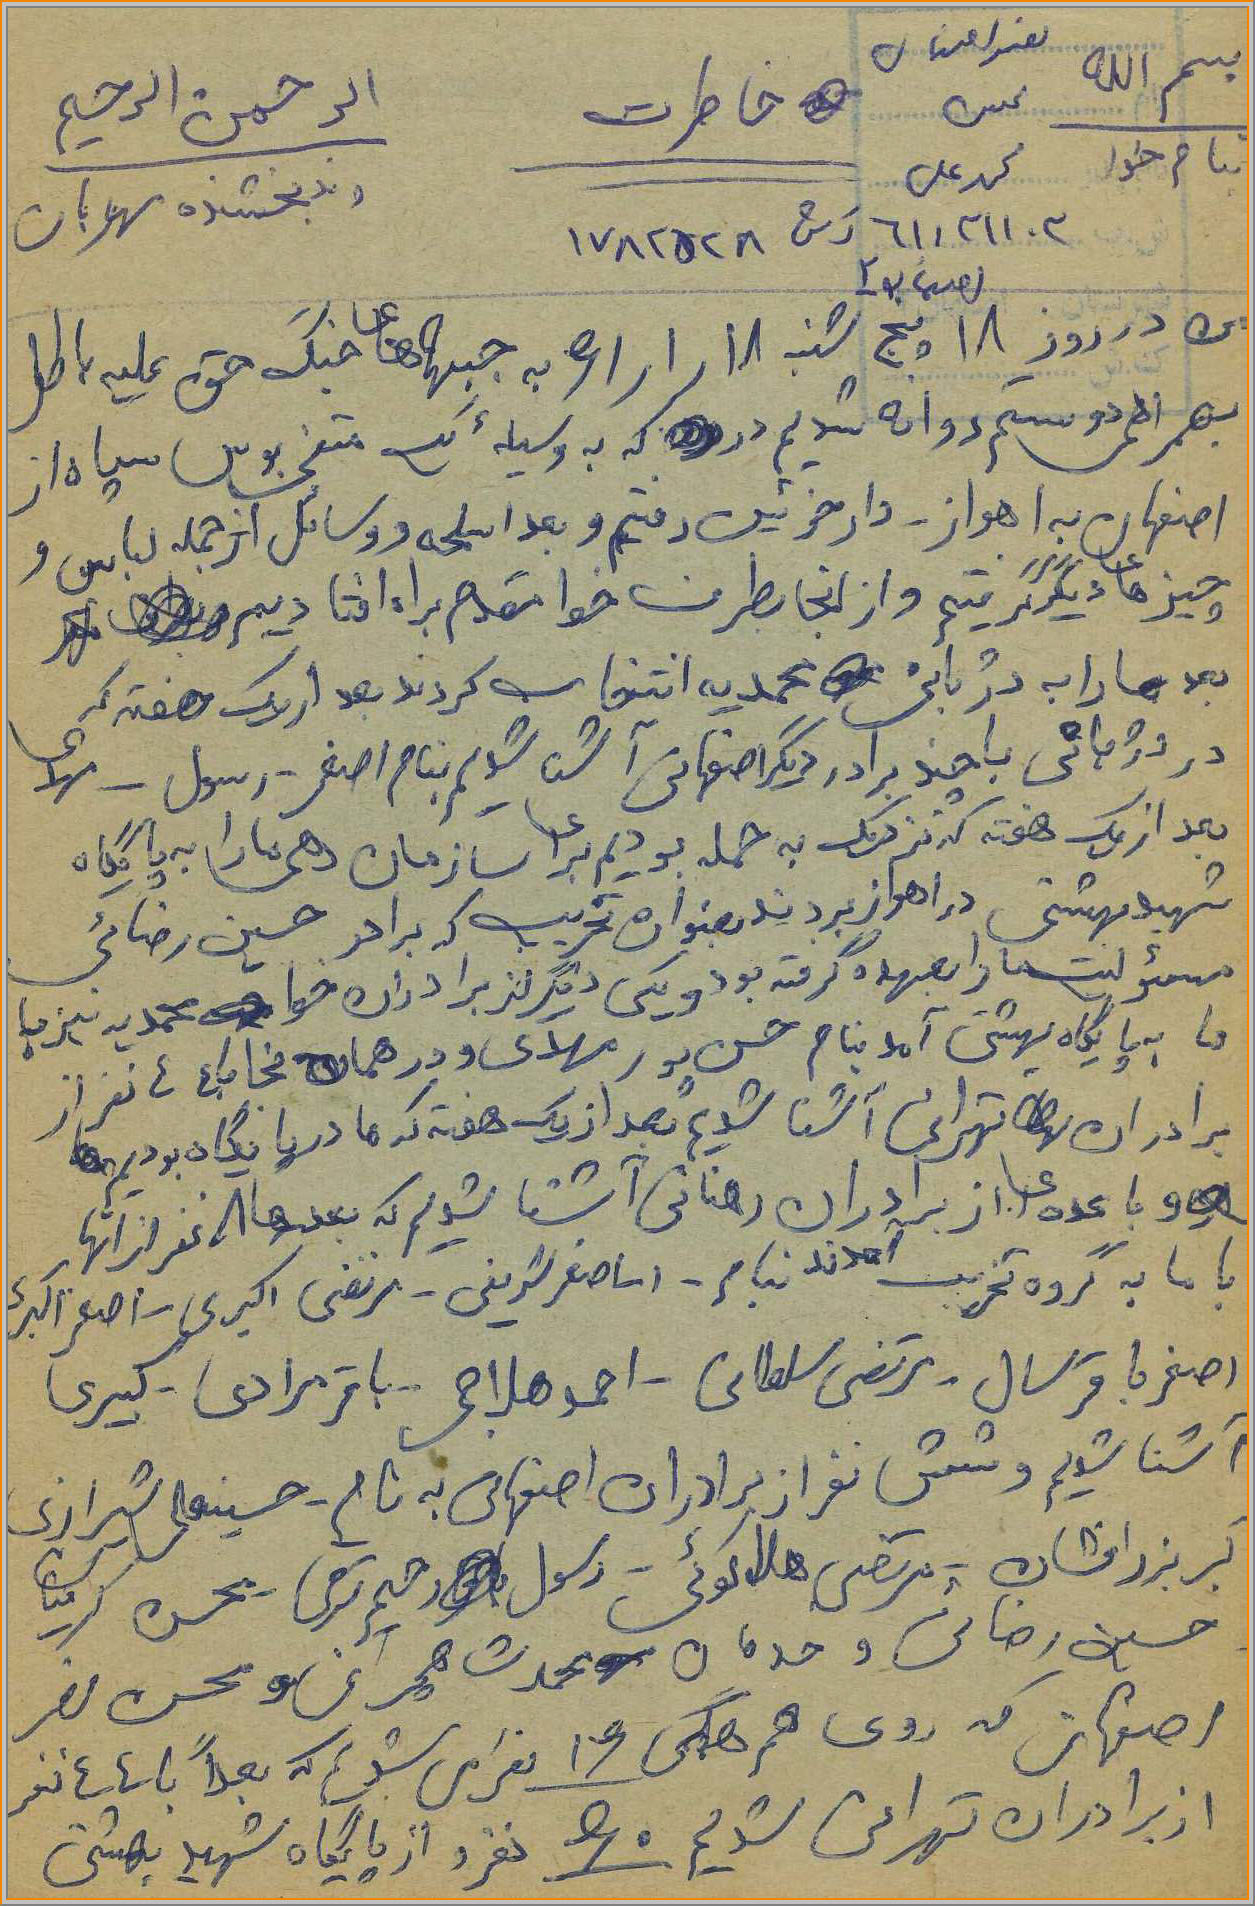 بسم الله الرحمن الرحیم
خاطرات
بنام خداوند بخشنده مهربان
نصر اصفهانی
محسن
محمد علی
۶۱۱۰۳۱۱۰۳ ش ۱۷۸۲۵۲۸
در روز ۱۸ پنج شنبه ۱۸ به جبهه های جنگ حق علیه باطل
بهمراهی دوستم روانه شدیم در که به وسیله یک منفی بوس سپاه از
اصفهان به اهواز - دارخوئین رفتیم و بعد اسلحه و وسائل از جمله لباس و
چیزهای دیگر گرفتیم و از انجا بطرف خط مقدم براه افتادیم
بعد ما را به دژبانی محمدیه انتخاب کردند بعد از یک هفته که
در دژبانی با چند برادر دیگر اصفهانی آشنا شدیم بنام اصغر - رسول - مهدی
بعد از یک هفته که نزدیک به حمله بودیم برای سازمان دهی ما را به پایگاه
شهید بهشتی در اهواز بردند بعنوان تخریب که برادر حسین رضائی
مسئولیت ما را بعهده گرفته بود و یکی دیگر از برادران محمدیه نیز با
ما به پایگاه بهشتی آمد بنام حسن پور مهدی و در همان جا با ۴۴ نفر از
برادران تهرانی آشنا شدیم بعد از یک هفته که ما در پایگاه بودیم
و با عده ای از برادران رهنانی آشنا شدیم که بعدها ۸ نفر از آنها
با ما به گروه تخریب آمدند بنام - اصغر شریفی - مرتضی اکبری - اصغر اکبری
اصغر باقرسال - مرتضی سلطانی - احمد حلاجی - باقر مرادی - کبیری
آشنا شدیم و شش نفر از برادران اصفهانی به نام - حسینعلی شیرازی
اکبر بزرافشان - مرتضی هلاکوئی - رسول رحیم - محسن
حسین رضائی و خودمان محمد شاهچراغی و محسن نصر
اصفهانی که روی هم همگی ۱۶ نفر می شدیم که بعداً با ۴۴ نفر
از برادران تهرانی شدیم ۶۰ نفر و از پایگاه شهید بهشتی